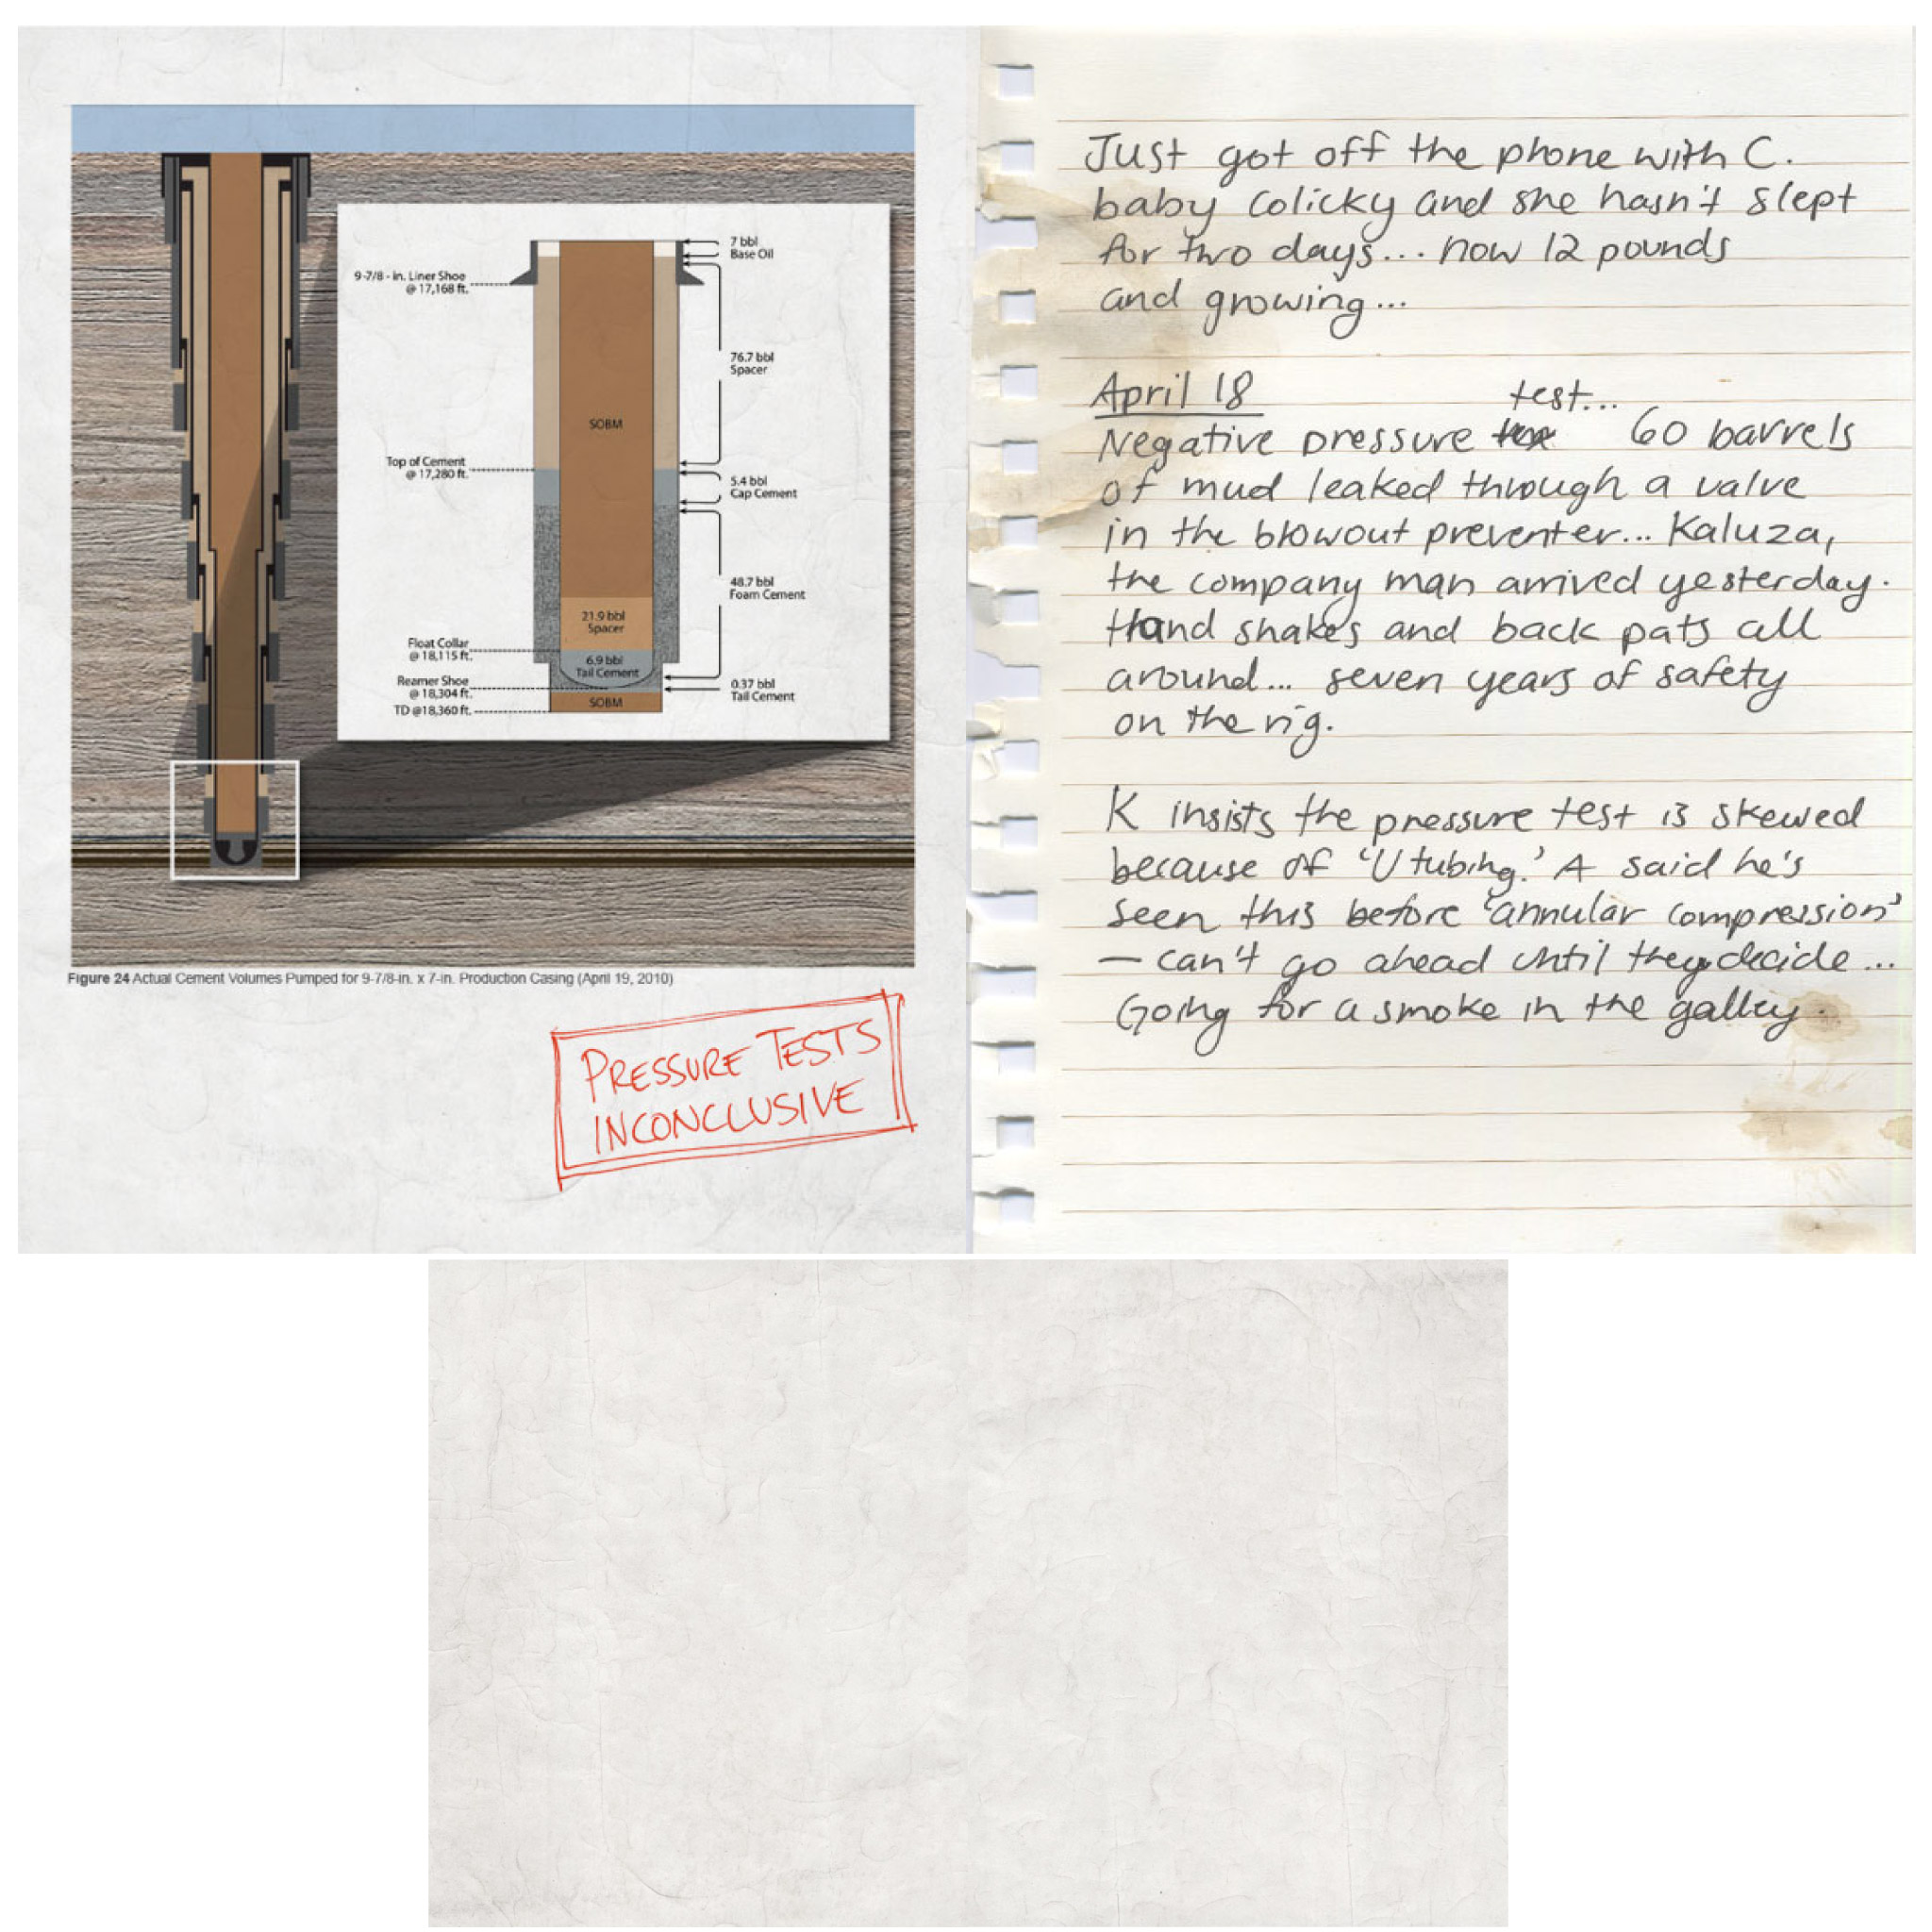 7 bbl
Base Oil
9-7/8 - in. Liner Shoe
@ 17,168 ft.
76.7 bbl
Spacer
SOBM
Top of Cement
@ 17,280 ft.
5.4 bbl
Cap Cement
48.7 bbl
Foam Cement
21.9 bbl
Spacer
Float Collar
@ 18,115 ft.
6.9 bbl
Tail Cement
Reamer Shoe
@ 18,304 ft.
0.37 bbl
Tail Cement
SOBM
TD @18,360 ft.
Figure 24 Actual Cement Volumes Pumped for 9-7/8-in. x 7-in. Production Casing (April 19, 2010)
PRESSURE TESTS
INCONCLUSIVE
Just got off the phone with C.
baby colicky and she hasn't slept
for two days... now 12 pounds
and growing...
April 18
Negative pressure test... 60 barrels
of mud leaked through a valve
in the blowout preventer... Kaluza,
the company man arrived yesterday.
Hand shakes and back pats all
around... seven years of safety
on the rig.
K insists the pressure test is skewed
because of 'U tubing.' A said he's
seen this before 'annular compression'
— can't go ahead until they decide...
Going for a smoke in the galley.